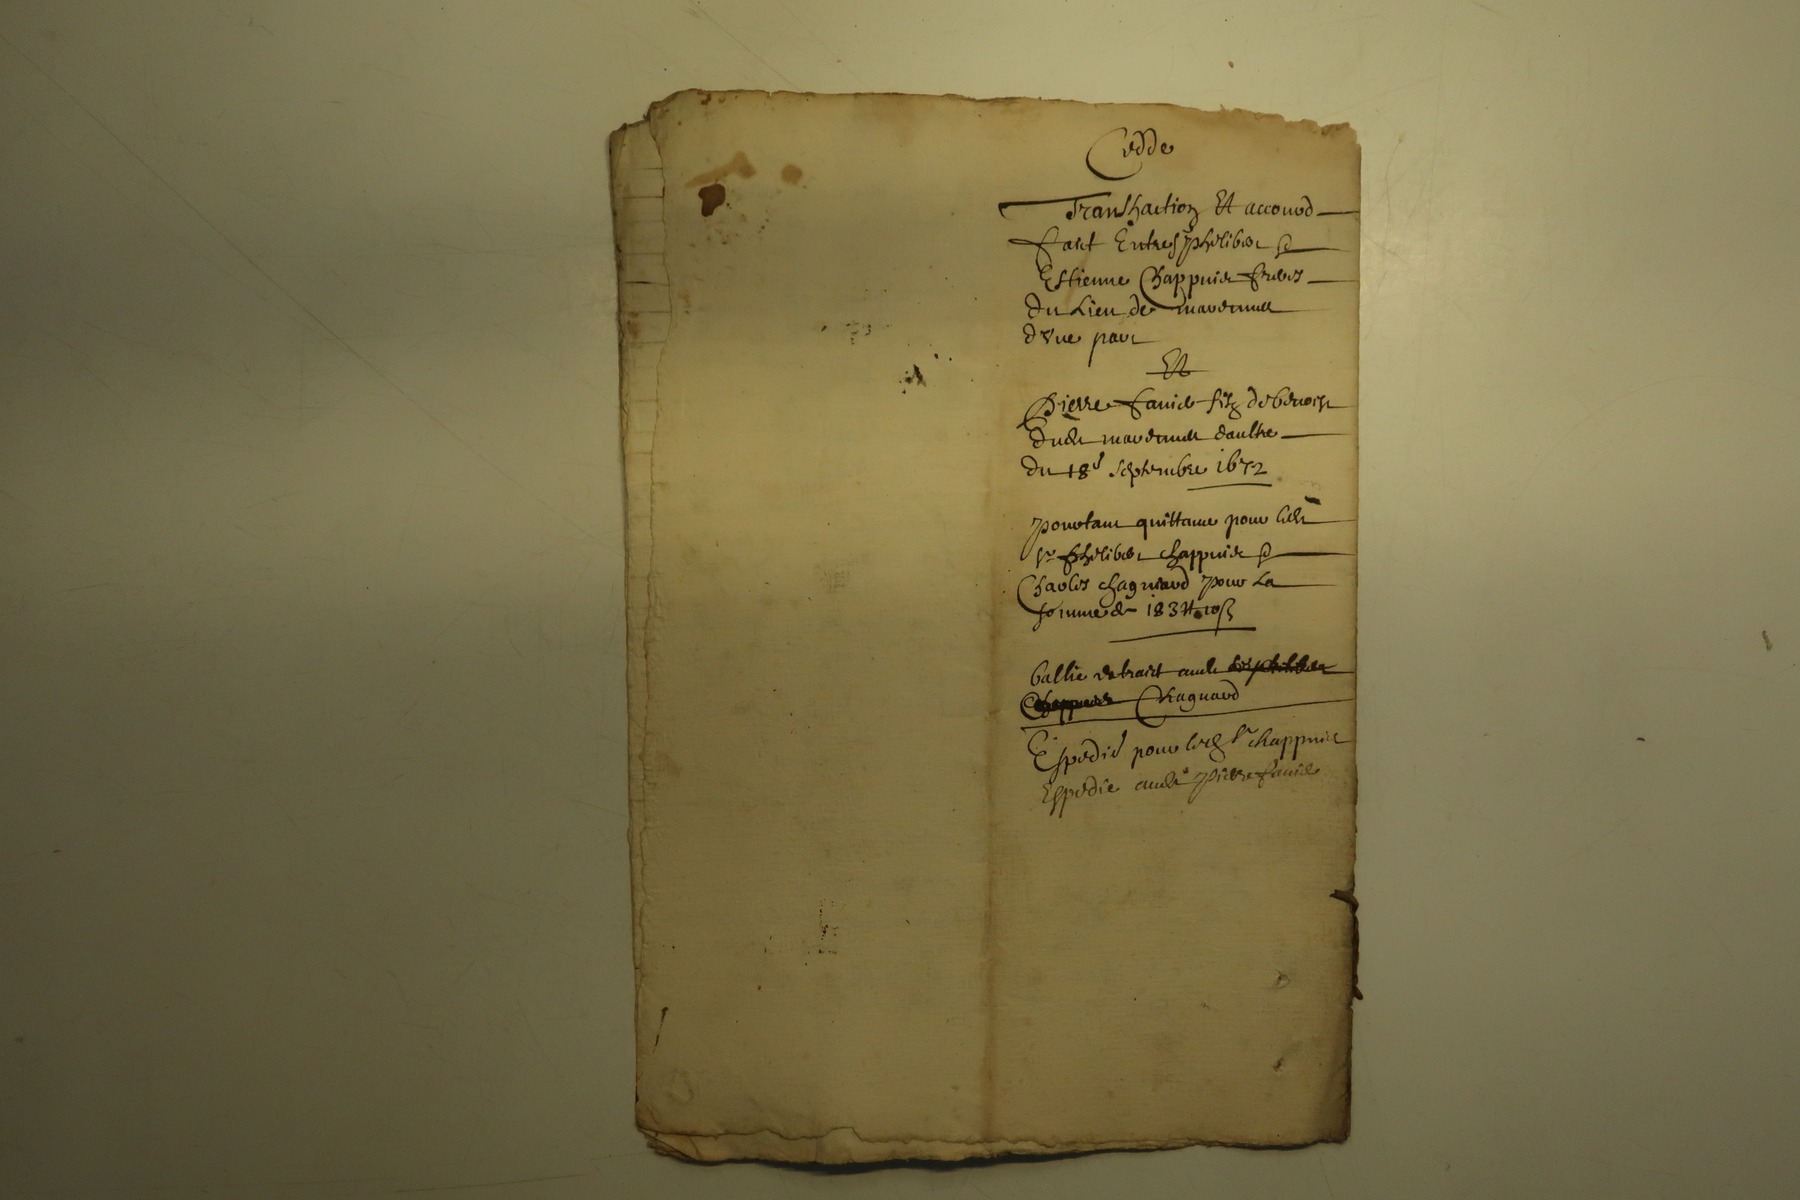 Cedde
Transhaction Et accourd
faict Entres Phelibert &
Estienne Chappuis freres
du Lieu de
d'vne part
Et
Pierre fils de benoist
dudt daultre
du 18e Septembre 1672
pourtant quittance pour ledt
sr Phelibert chappuis &
Charles chagniard pour La
somme de 183 tt 10 ß
Callie extraict audt
Chagnard
Expedié pour ledt sr chappuis
Expedie audt Pierre